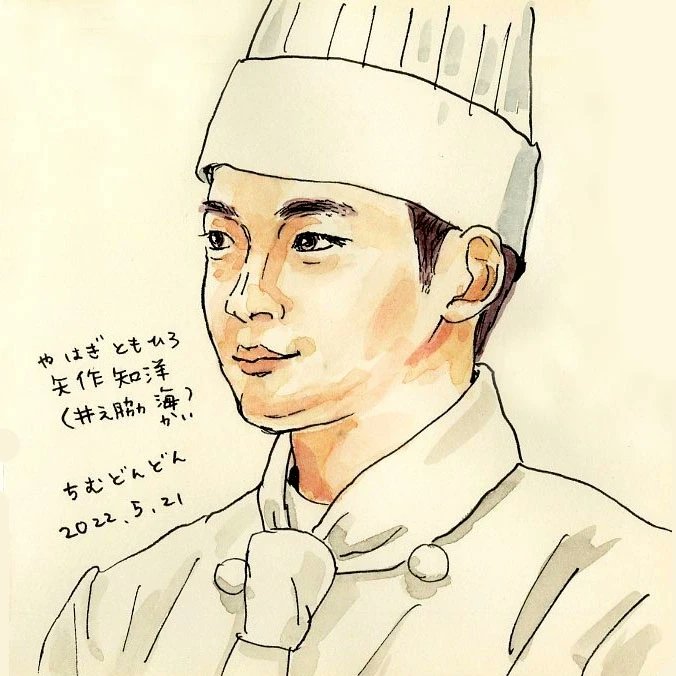 やはぎ ともひろ
矢作 知洋
(井之脇 海)
かい
ちむどんどん
2022.5.21